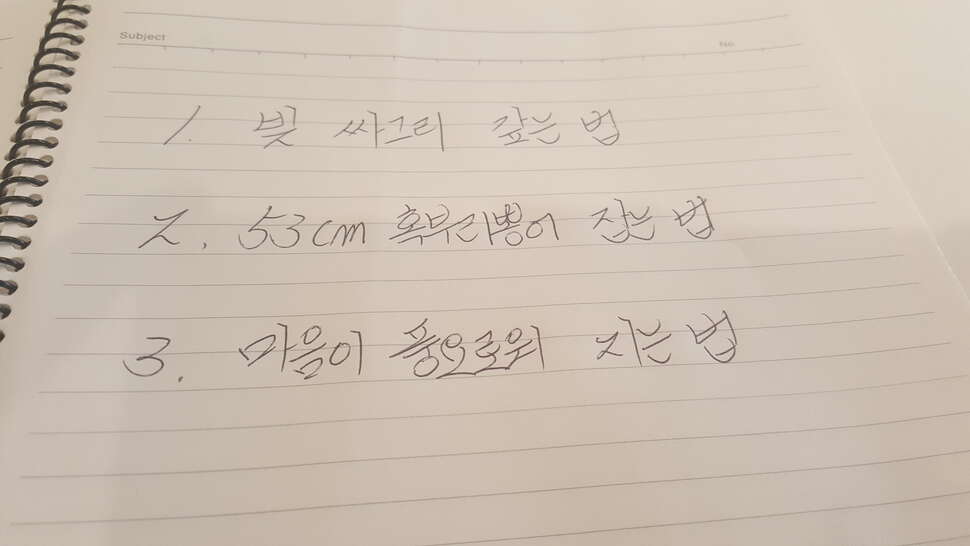 Subject No.
1. 빚 싸그리 갚는 법
2. 53cm 혹부리뽕어 잡는 법
3. 마음이 풍요로워 지는 법